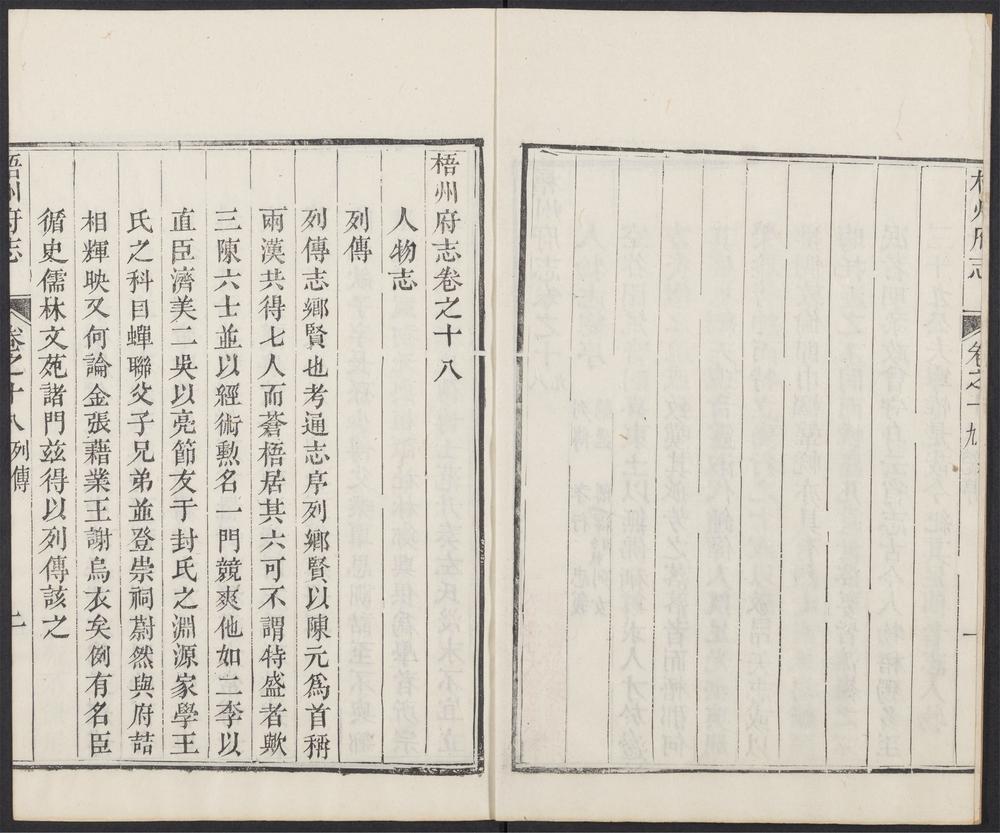 梧州府志
卷之十九
一
梧州府志卷之十八
人物志
列傳
列傳志鄉賢也考通志序列鄉賢以陳元爲首稱
兩漢共得七人而蒼梧居其六可不謂特盛者歟
三陳六士並以經術勲名一門競爽他如二李以
直臣濟美二吳以亮節友于封氏之淵源家學王
氏之科目蟬聯父子兄弟並登崇祠蔚然與府喆
相輝映又何論金張藉業王謝烏衣矣例有名臣
循史儒林文苑諸門兹得以列傳該之
梧州府志
卷之十八列傳